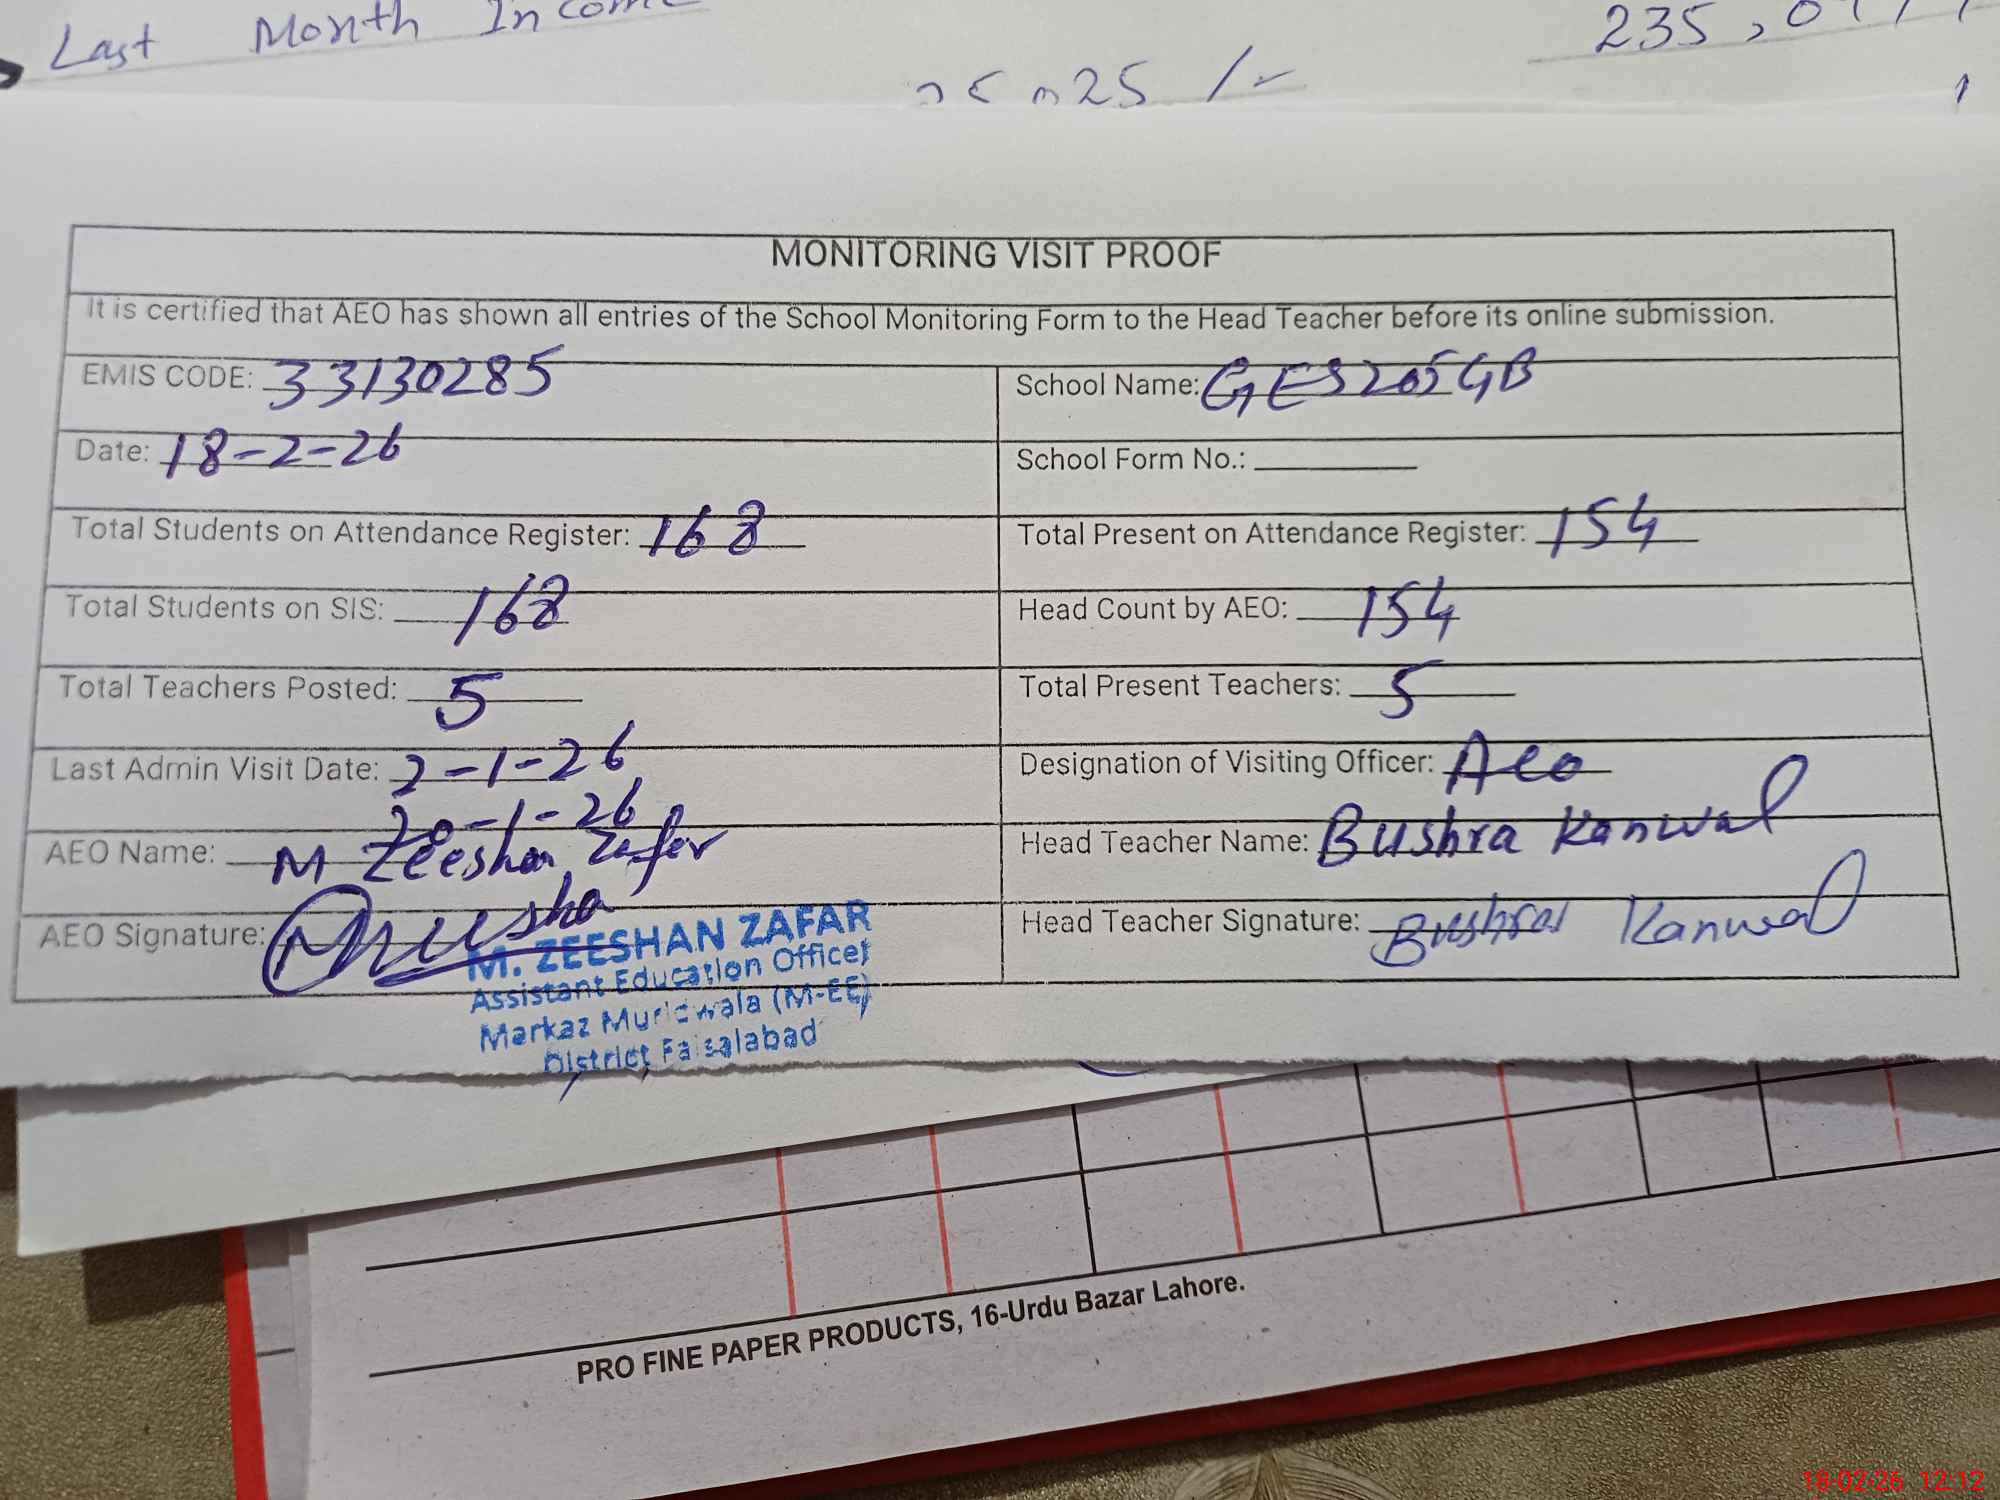 Last Month Income
235,0
25 /-
MONITORING VISIT PROOF
It is certified that AEO has shown all entries of the School Monitoring Form to the Head Teacher before its online submission.
EMIS CODE: 33130285 School Name: GES 205 GB
Date: 18-2-26 School Form No.:
Total Students on Attendance Register: 168 Total Present on Attendance Register: 154
Total Students on SIS: 168 Head Count by AEO: 154
Total Teachers Posted: 5 Total Present Teachers: 5
Last Admin Visit Date: 2-1-26 Designation of Visiting Officer: Aeo
20-1-26
AEO Name: M Zeeshan Zafar Head Teacher Name: Bushra Kanwal
AEO Signature: Head Teacher Signature: Bushra Kanwal
M. ZEESHAN ZAFAR
Assistant Education Officer
Markaz Muridwala (M-EE)
District Faisalabad
PRO FINE PAPER PRODUCTS, 16-Urdu Bazar Lahore.
18-02-26 12:12